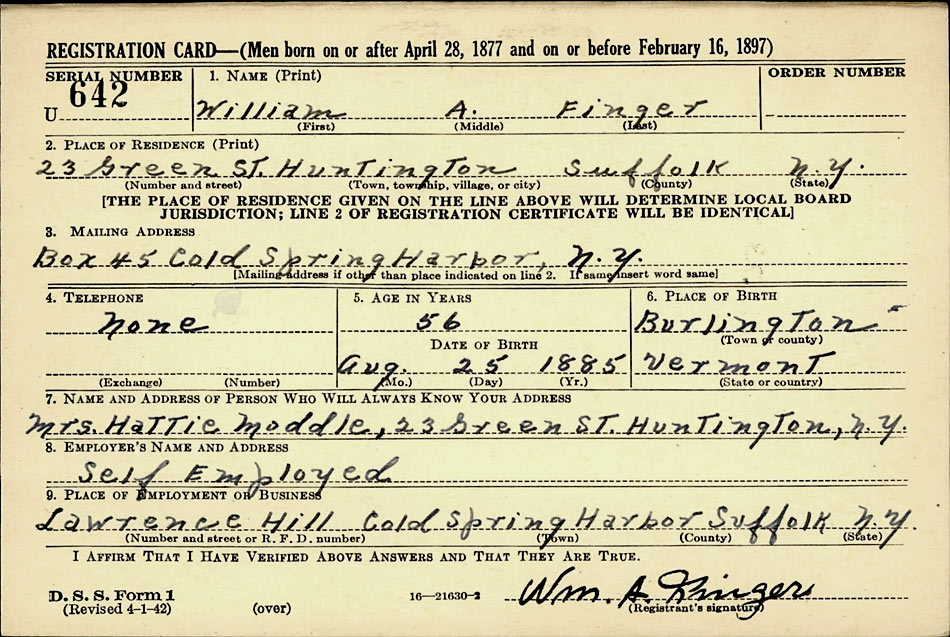 REGISTRATION CARD—(Men born on or after April 28, 1877 and on or before February 16, 1897)
SERIAL NUMBER 1. NAME (Print) ORDER NUMBER
U 642 William A. Finger
(First) (Middle) (Last)
2. PLACE OF RESIDENCE (Print)
23 Green ST. Huntington Suffolk N.Y.
(Number and street) (Town, township, village, or city) (County) (State)
[THE PLACE OF RESIDENCE GIVEN ON THE LINE ABOVE WILL DETERMINE LOCAL BOARD
JURISDICTION; LINE 2 OF REGISTRATION CERTIFICATE WILL BE IDENTICAL]
3. MAILING ADDRESS
Box 45 Cold Spring Harbor, N.Y.
[Mailing address if other than place indicated on line 2. If same insert word same]
4. TELEPHONE 5. AGE IN YEARS 6. PLACE OF BIRTH
None 56 Burlington
DATE OF BIRTH (Town or county)
Aug. 25 1885 Vermont
(Exchange) (Number) (Mo.) (Day) (Yr.) (State or country)
7. NAME AND ADDRESS OF PERSON WHO WILL ALWAYS KNOW YOUR ADDRESS
Mrs. Hattie Moddle, 23 Green ST. Huntington, N.Y.
8. EMPLOYER'S NAME AND ADDRESS
Self Employed
9. PLACE OF EMPLOYMENT OR BUSINESS
Lawrence Hill Cold Spring Harbor Suffolk N.Y.
(Number and street or R. F. D. number) (Town) (County) (State)
I AFFIRM THAT I HAVE VERIFIED ABOVE ANSWERS AND THAT THEY ARE TRUE.
D. S. S. Form 1 Wm. A. Finger
(Revised 4-1-42) (over) 16—21630-2 (Registrant's signature)